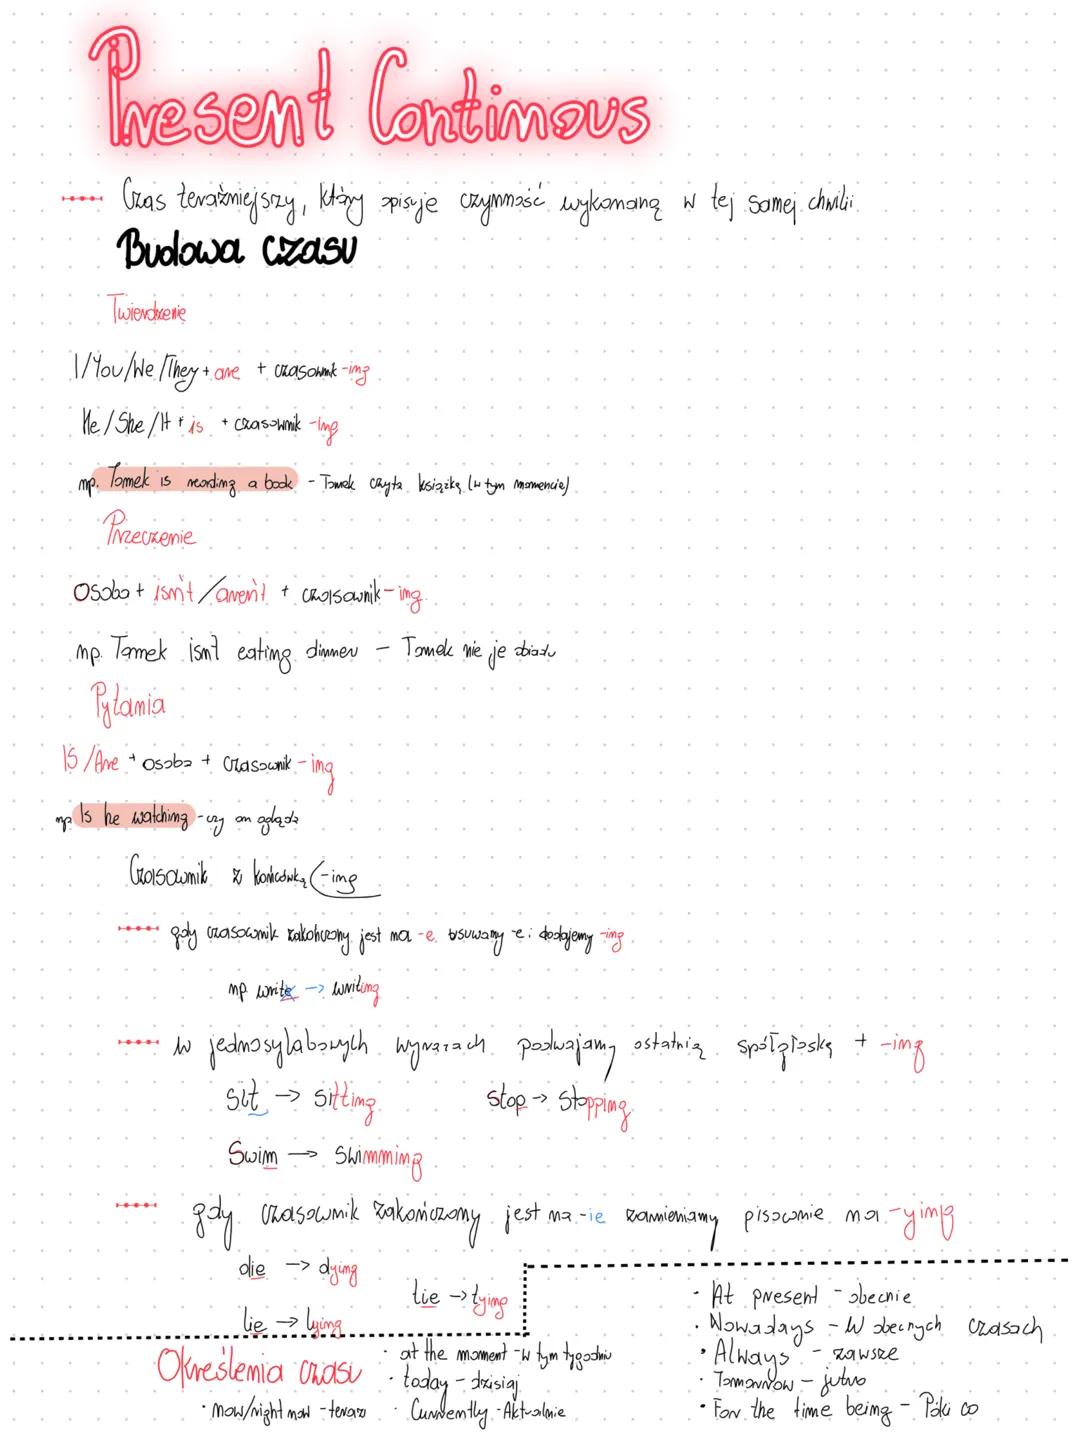 Present Continous
Czas teraźniejszy, który opisuje czynność wykonaną w tej samej chwili
Budowa czasu
Twierdzenie
I/You/We/They + are + czasownik -ing
He/She/It + is + czasownik -ing
np. Tomek is reading a book - Tomek czyta książkę (w tym momencie)
Przeczenie
Osoba + isn't/aren't + czasownik -ing
np. Tomek isn't eating dinner - Tomek nie je obiadu
Pytania
IS/Are + osoba + czasownik -ing
np. Is he watching - czy on ogląda
Czasownik z końcówką -ing
gdy czasownik zakończony jest na -e usuwamy -e i dodajemy -ing
np write -> writing
w jednosylabowych wyrazach podwajamy ostatnią spółgłoskę + -ing
sit -> sitting stop -> stopping
Swim -> swimming
gdy czasownik zakończony jest na -ie zamieniamy pisownie na -ying
die -> dying
tie -> tying
lie -> lying
Określenia czasu
• now/right now - teraz
• at the moment - w tym tygodniu
• today - dzisiaj
• Currently - Aktualnie
• At present - obecnie
• Nowadays - W obecnych czasach
• Always - zawsze
• Tomorrow - jutro
• For the time being - Póki co